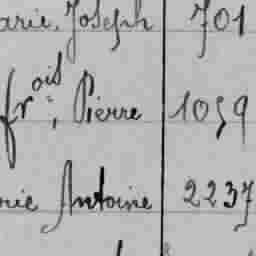 arie, Joseph 701
frois, Pierre 1059
rie Antoine 2237